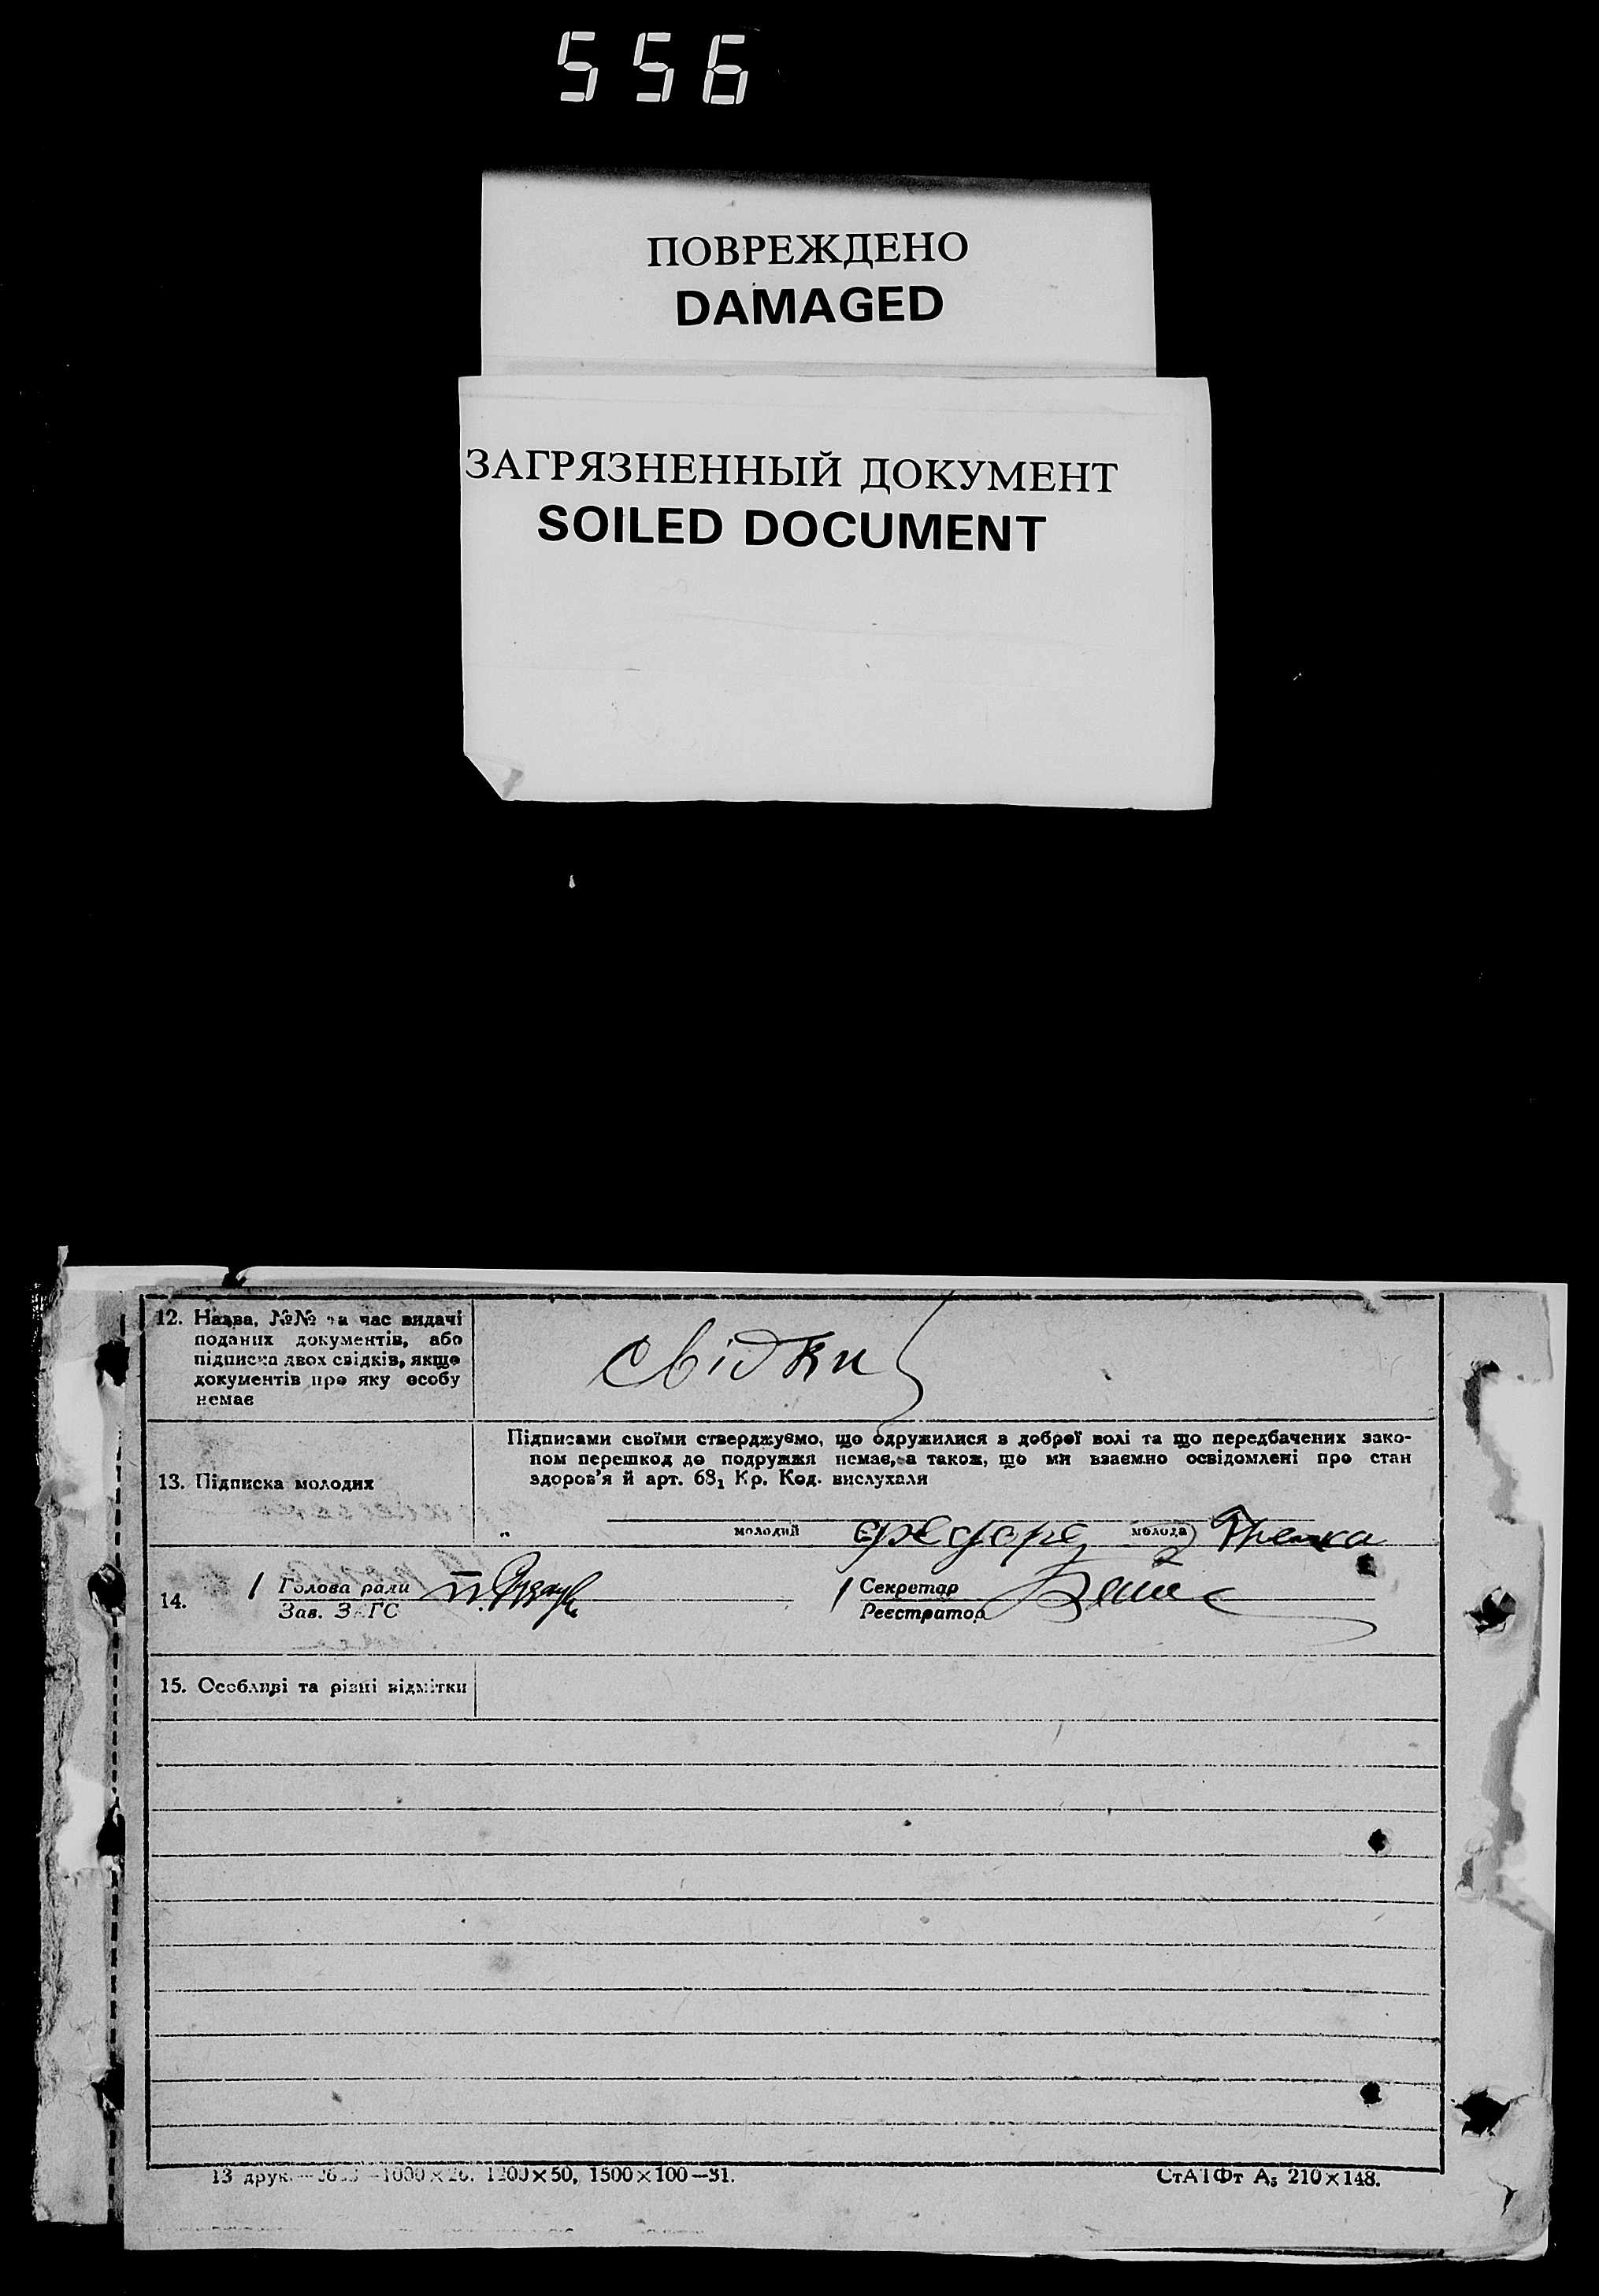 556
ПОВРЕЖДЕНО
DAMAGED
ЗАГРЯЗНЕННЫЙ ДОКУМЕНТ
SOILED DOCUMENT
12. Назва, №№ та час видачі
поданих документів, або
підписка двох свідків, якщо
документів про яку особу
немає
свідки
Підписами своїми стверджуємо, що одружилися з доброї волі та що передбачених зако-
ном перешкод до подружжя немає, а також, що ми взаємно освідомлені про стан
здоров'я й арт. 68₁ Кр. Код. вислухали
13. Підписка молодих
молодий
молода
14.
Голова ради
Зав. ЗАГС
Секретар
Реєстратор
15. Особливі та різні відмітки
13 друк. 1000×26, 1200×50, 1500×100—31.
СтАТФт А₅ 210×148.